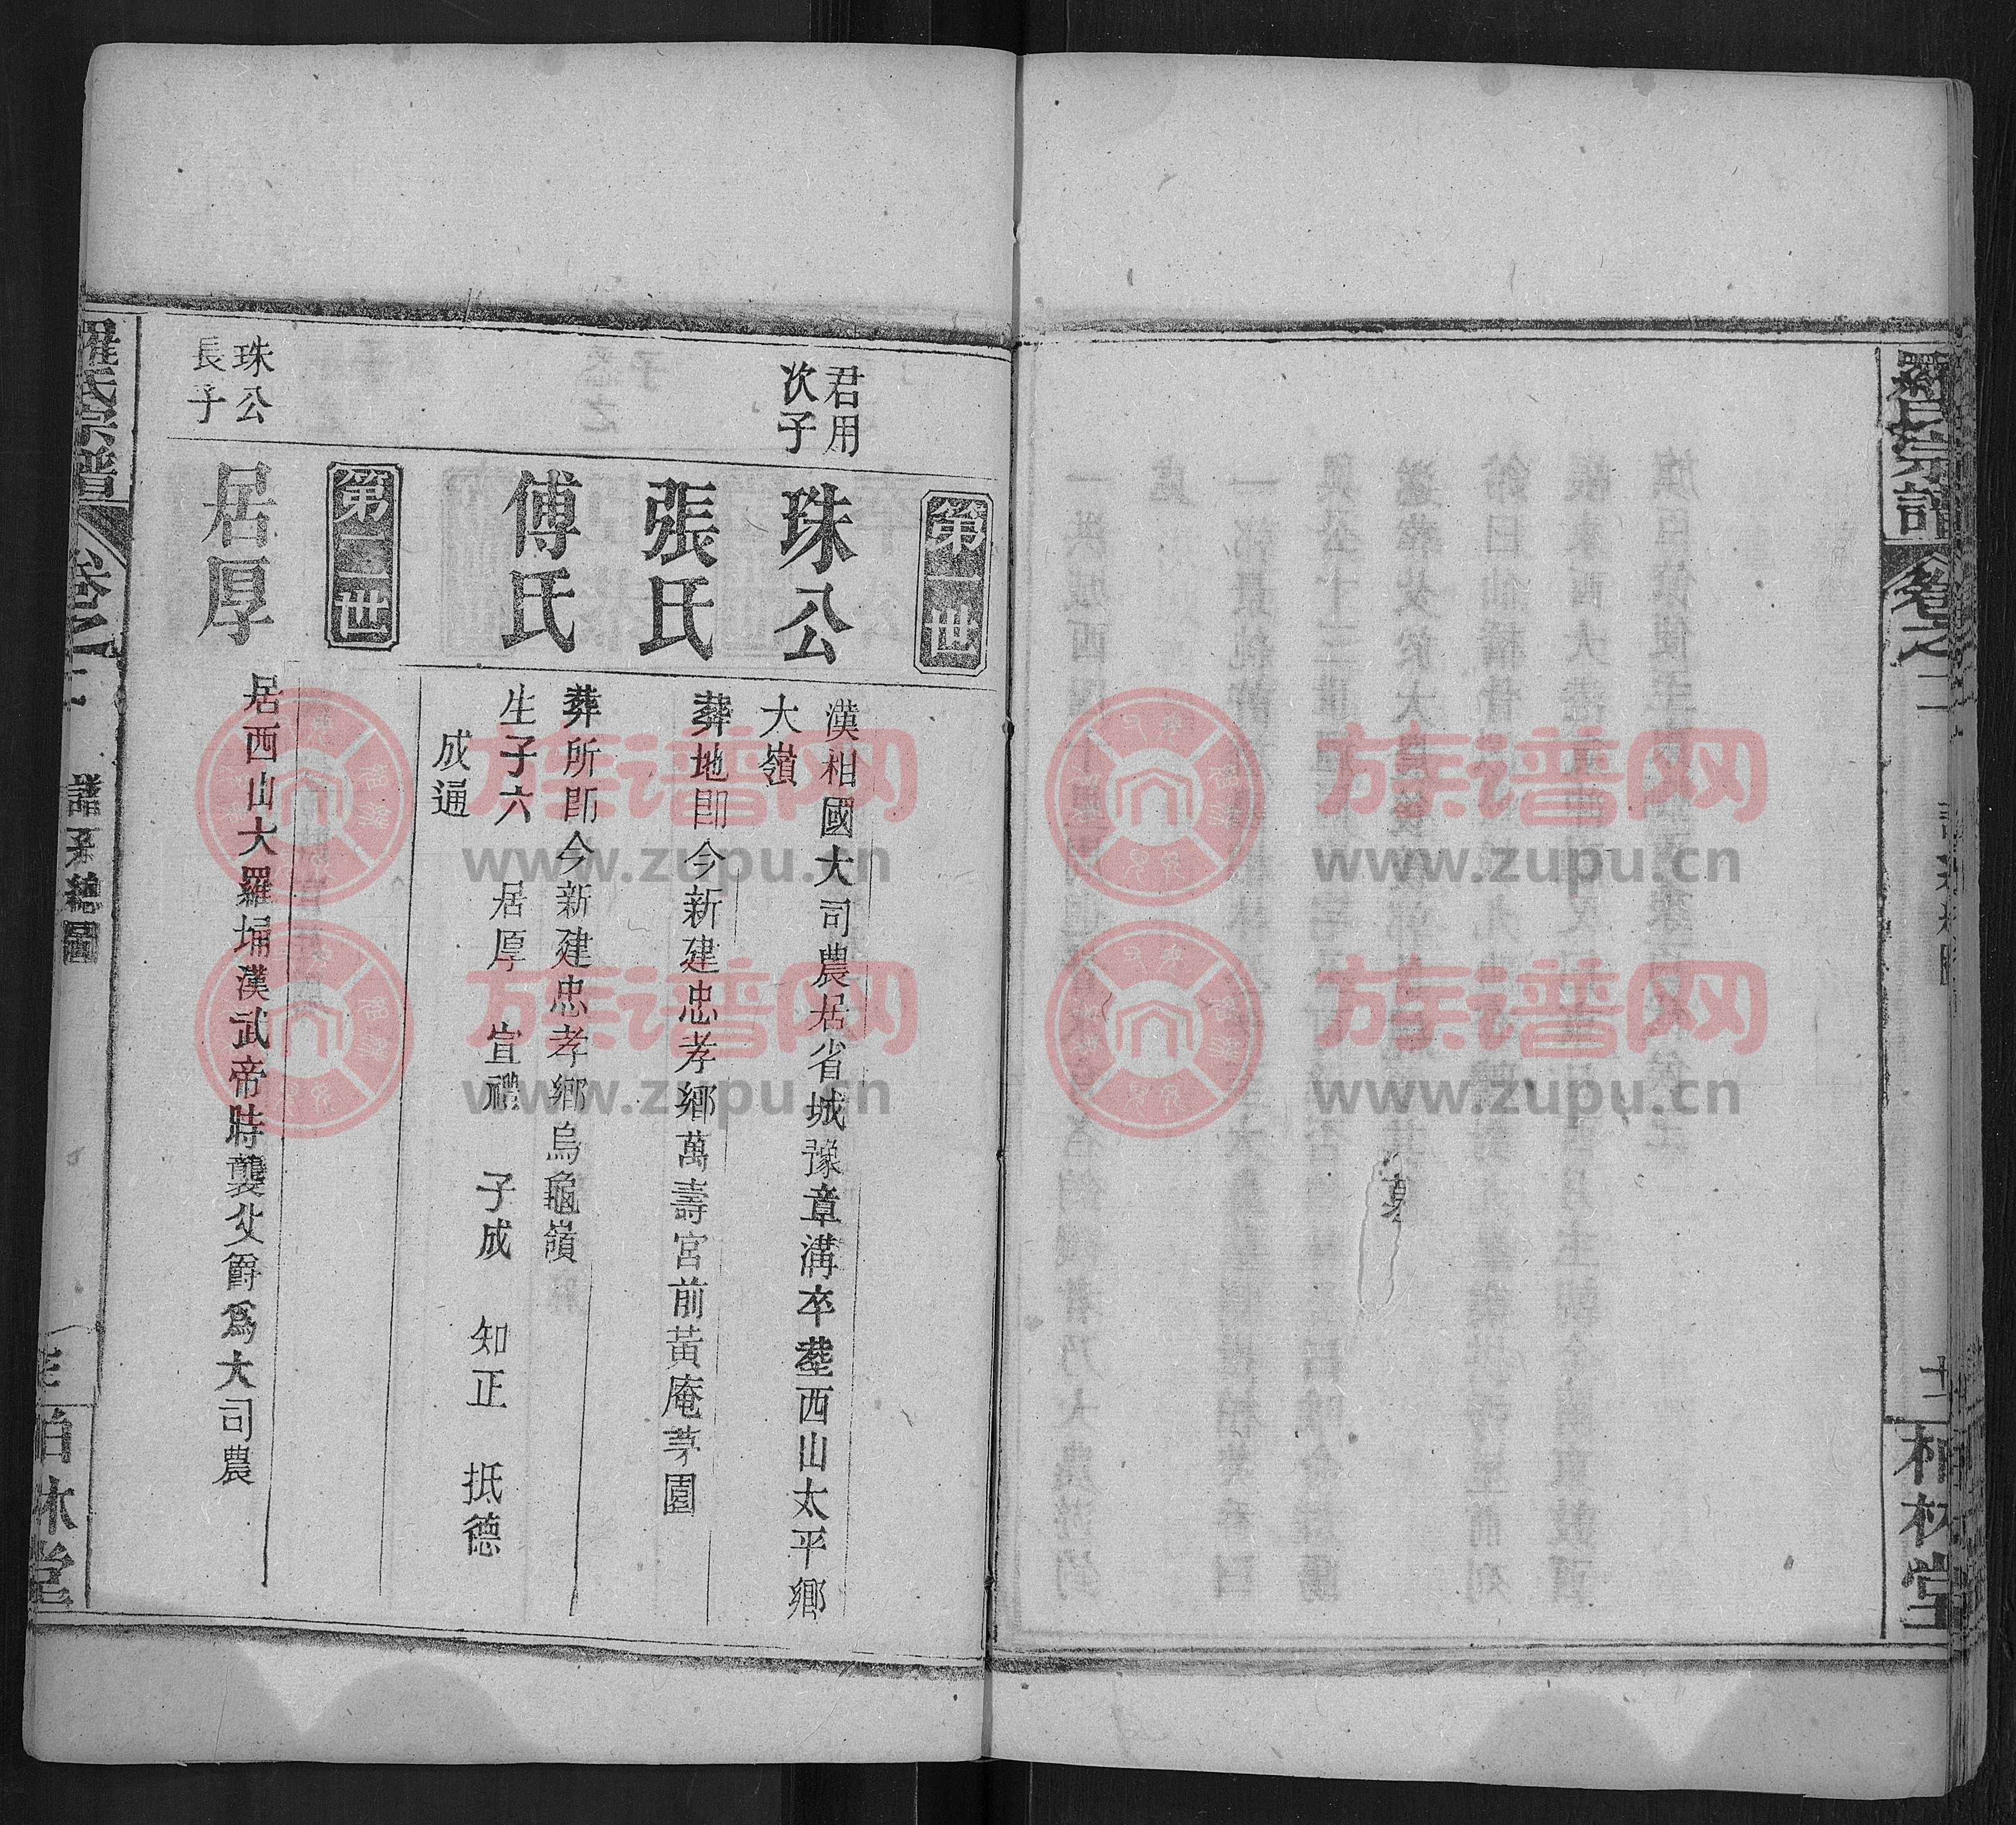 羅氏宗譜
卷之二
十二
柏林堂
第一世
君用
次子
珠公
漢相國大司農居省城豫章溝卒塟西山太平鄉
大嶺
張氏
葬地即今新建忠孝鄉萬壽宮前黃庵茅園
傅氏
葬所即今新建忠孝鄉烏龜嶺
生子六 居厚 宣禮 子成 知正 抵德
成通
第二世
珠公
長子
居厚
居西山大羅埇漢武帝時襲父爵爲大司農
羅氏宗譜
卷之二
譜系總圖
柏林堂
族谱网
www.zupu.cn
族谱网
www.zupu.cn
族谱网
www.zupu.cn
族谱网
www.zupu.cn